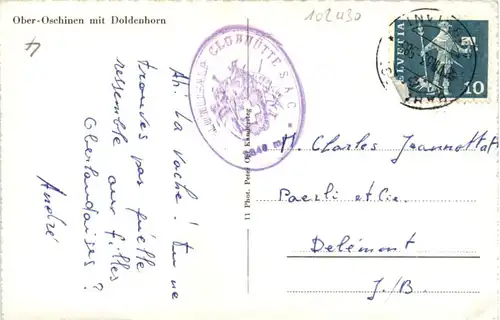 Ober-Oschinen mit Doldenhorn
102430
4
Ah! La vache! Tu ne
trouves pas qu'elle
ressemble aux filles
Oberlandaises?
André
CLUBHÜTTE S.A.C.
2840 m
11 Phot. Peter Kandersteg
HELVETIA
10
M. Charles Jeannottat
Paerli et Cie.
Delémont
J./B.